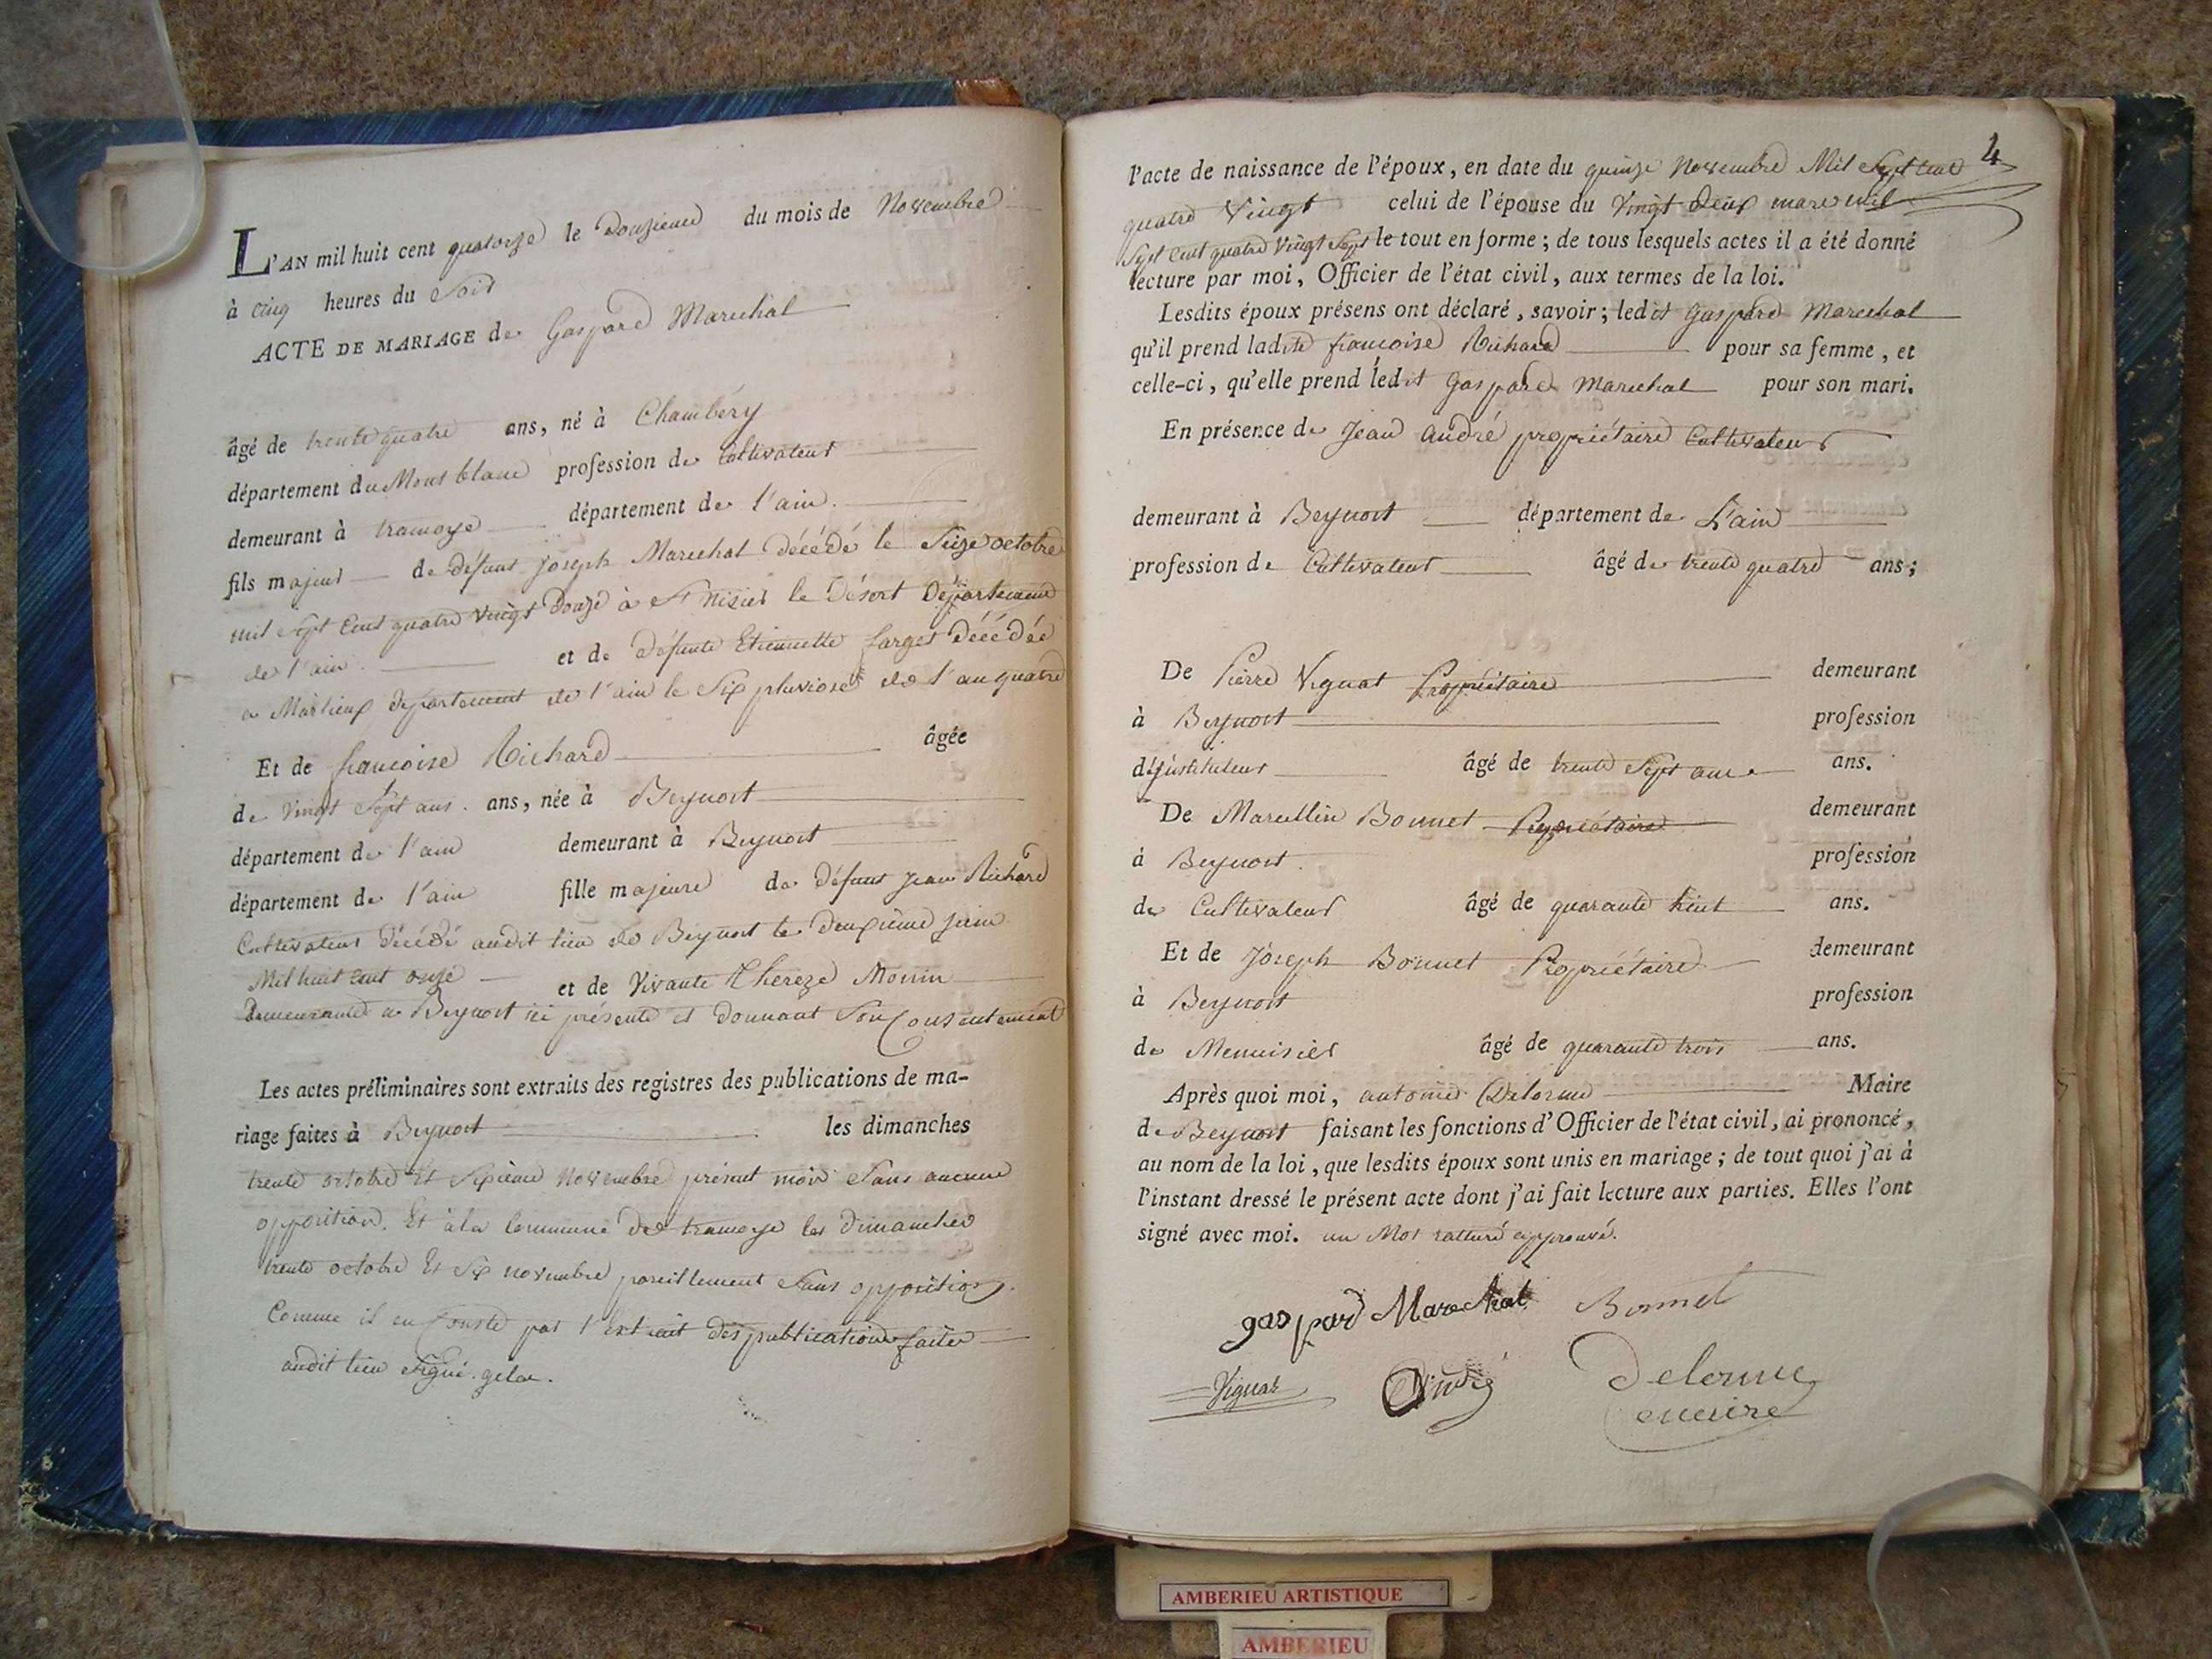 L'AN mil huit cent quatorze le Douzieme du mois de Novembre
à cinq heures du Soir
ACTE DE MARIAGE de Gaspard Marechal
âgé de trente quatre ans, né à Chambéry
département du Mont blanc profession de Cultivateur
demeurant à tramoye département de l'ain.
fils majeur de défunt Joseph Marechal décédé le Seize octobre
mil Sept Cent quatre vingt Douze à St Nizier le Désert Département
de l'ain. et de défunte Etiennette farget Décédée
a Marlieux département de l'ain le Six pluviose de l'an quatre
Et de francoise Richard âgée
de vingt Sept ans. ans, née à Beynost
département de l'ain demeurant à Beynost
département de l'ain fille majeure de défunt Jean Richard
Cultivateur Décédé audit lieu de Beynost le deuxième juin
Mil huit cent onze et de Vivante Thereze Monin
Demeurante a Beynost ici présente et donnant Son Consentement
Les actes préliminaires sont extraits des registres des publications de ma-
riage faites à Beynost les dimanches
trente octobre Et Sixieme Novembre présent mois Sans aucune
opposition. Et à la Commune de tramoye les dimanches
trente octobre Et Six novembre pareillement Sans opposition.
Comme il en Conste par l'extrait des publications faites
audit lieu Signé
4
l'acte de naissance de l'époux, en date du quinze Novembre Mil Sept Cent
quatre Vingt celui de l'épouse du Vingt Deux mars mil
Sept Cent quatre Vingt Sept le tout en forme ; de tous lesquels actes il a été donné
lecture par moi, Officier de l'état civil, aux termes de la loi.
Lesdits époux présens ont déclaré, savoir ; ledit Gaspard Marechal
qu'il prend ladite francoise Richard pour sa femme, et
celle-ci, qu'elle prend ledit Gaspard Marechal pour son mari.
En présence de Jean andré propriétaire Cultivateur
demeurant à Beynost département de L'ain
profession de Cultivateur âgé de trente quatre ans ;
De Pierre Vignat Propriétaire demeurant
à Beynost profession
d'justituteur âgé de trente Sept ans ans.
De Marcellin Bonnet Propriétaire demeurant
à Beynost. profession
de Cultivateur âgé de quarante huit ans.
Et de Joseph Bonnet Propriétaire demeurant
à Beynost profession
de Menuisier âgé de quarante trois ans.
Après quoi moi, antoine Delorme Maire
de Beynost faisant les fonctions d'Officier de l'état civil, ai prononcé,
au nom de la loi, que lesdits époux sont unis en mariage ; de tout quoi j'ai à
l'instant dressé le présent acte dont j'ai fait lecture aux parties. Elles l'ont
signé avec moi. un Motratturé approuvé.
gaspard Marechal Bonnet
Vignat André Delorme
maire
AMBERIEU ARTISTIQUE
AMBERIEU